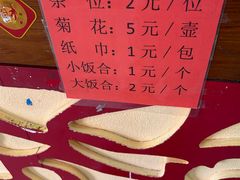 茶 位：2 元／位
菊 花：5 元／壶
纸 巾：1 元／包
小饭合：1 元／个
大饭合：2 元／个